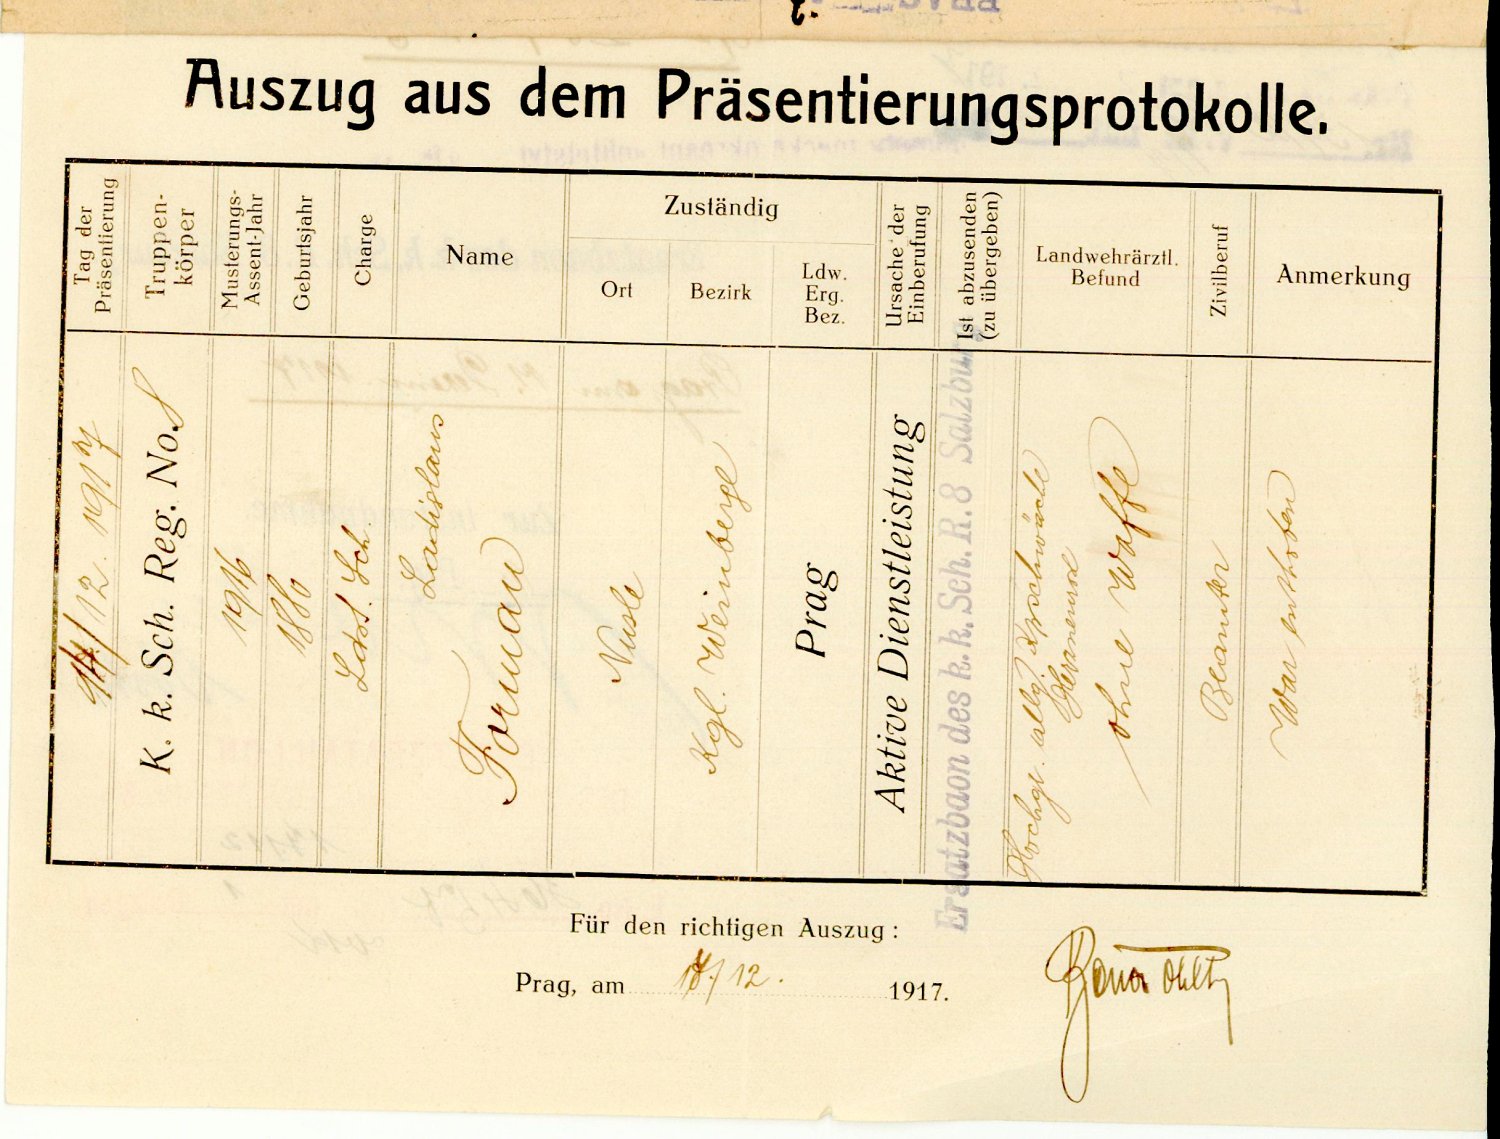 Auszug aus dem Präsentierungsprotokolle.
Tag der
Präsentierung
Truppen-
körper
Musterungs-
Assent-Jahr
Geburtsjahr
Charge
Name
Zuständig
Ort
Bezirk
Ldw.
Erg.
Bez.
Ursache der
Einberufung
Ist abzusenden
(zu übergeben)
Landwehrärztl.
Befund
Zivilberuf
Anmerkung
14/12. 1917
K. k. Sch. Reg. No. 8
1916
1880
Ldst. Sch
Ladislaus
Forman
Nusle
Kgl. Weinberge
Prag
Aktive Dienstleistung
Ersatzbaon des k. k. Sch. R. 8 Salzburg
Hochgr. allg.
ohne Waffe
Beamter
War enthoben
Für den richtigen Auszug:
Prag, am 14/12. 1917.